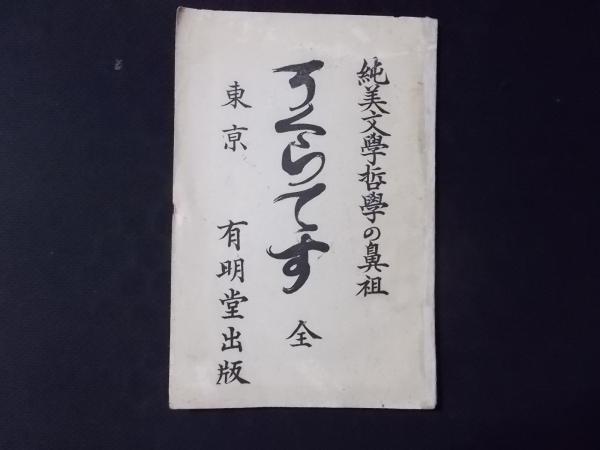 純美文學哲學の鼻祖
そくらてす 全
東京 有明堂出版